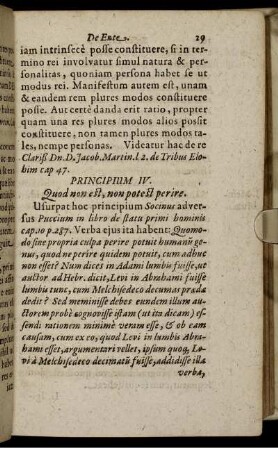 De Ente. 29
iam intrinsecè posse constituere, si in ter-
mino rei involvatur simul natura & per-
sonalitas, quoniam persona habet se ut
modus rei. Manifestum autem est, unam
& eandem rem plures modos constituere
posse. Aut certè danda erit ratio, propter
quam una res plures modos alios possit
constituere, non tamen plures modos ta-
les, nempe personas. Videatur hac de re
Clariss. Dn. D. Jacob. Martin. l. 2. de Tribus Elo-
him cap 47.
PRINCIPIUM IV.
Quod non est, non potest perire.
Usurpat hoc principium Socinus adver-
sus Puccium in libro de statu primi hominis
cap. 10 p. 287. Verba ejus ita habent: Quomo-
do sine propria culpa perire potuit humanū ge-
nus, quod ne perire quidem potuit, cum adhuc
non esset? Num dices in Adami lumbis fuisse, ut
auctor ad Hebr. dicit, Levi in Abrahami fuisse
lumbis tunc, cum Melchisedeco decumas prædæ
dedit? Sed meminisse debes eundem illum au-
ctorem probè cognovisse istam (ut ita dicam) es-
sendi rationem minimè veram esse, & ob eam
causam, cum ex eo, quod Levi in lumbis Abra-
hami esset, argumentari vellet, ipsum quoq, Le-
vi à Melchisedeco decimatū fuisse, addidisse illa
verba,